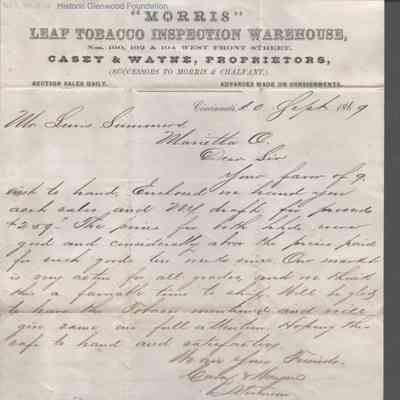 Historic Glenwood Foundation
"MORRIS"
LEAF TOBACCO INSPECTION WAREHOUSE,
Nos. 100, 102 & 104 WEST FRONT STREET.
CASEY & WAYNE, PROPRIETORS,
(SUCCESSORS TO MORRIS & CHALFANT.)
AUCTION SALES DAILY. ADVANCES MADE ON CONSIGNMENTS.
Cincinnati, Sept
Mr. Summers
Marietta O.
Dear Sir
Your favor of 9
to hand. Enclosed we hand you
sales and draft for proceeds
The prices for both were
good and considerably above the prices paid
for such goods ten weeks since. Our market
is very active for all grades, and we think
this a favorable time to ship. Will be glad
to have the Tobacco mentioned and will
give same our full attention. Hoping this
safe to hand and satisfactory
We are Your Friends.
Casey & Wayne